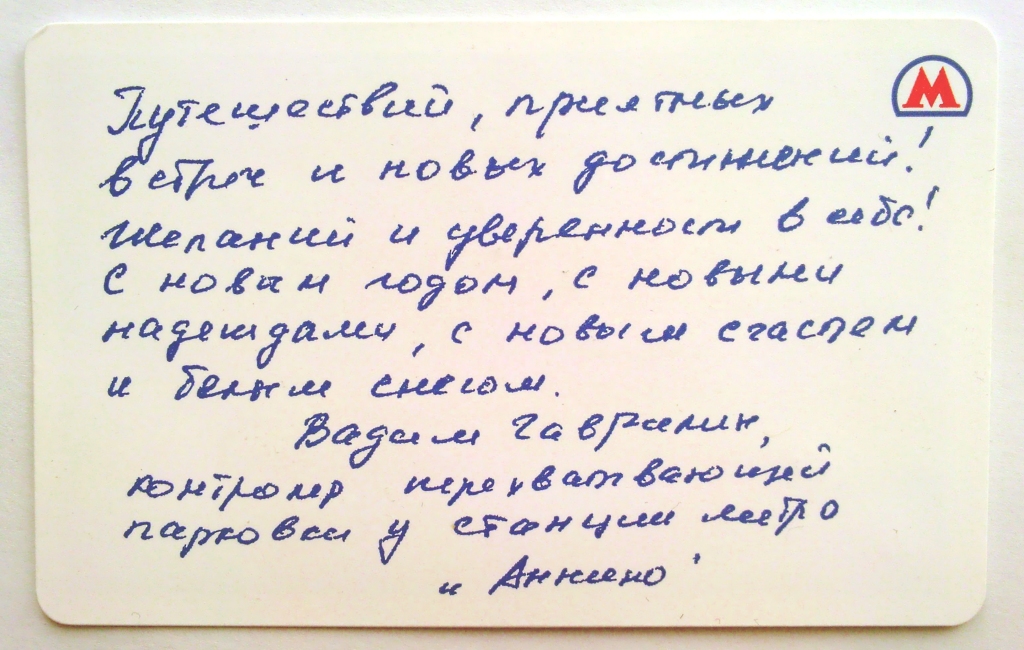 М
Путешествий, приятных
встреч и новых достижений!
Желаний и уверенности в себе!
С новым годом, с новыми
надеждами, с новым счастьем
и белым снегом.
Вадим Гаврилин,
контролер перехватывающей
парковки у станции метро
"Аннино"